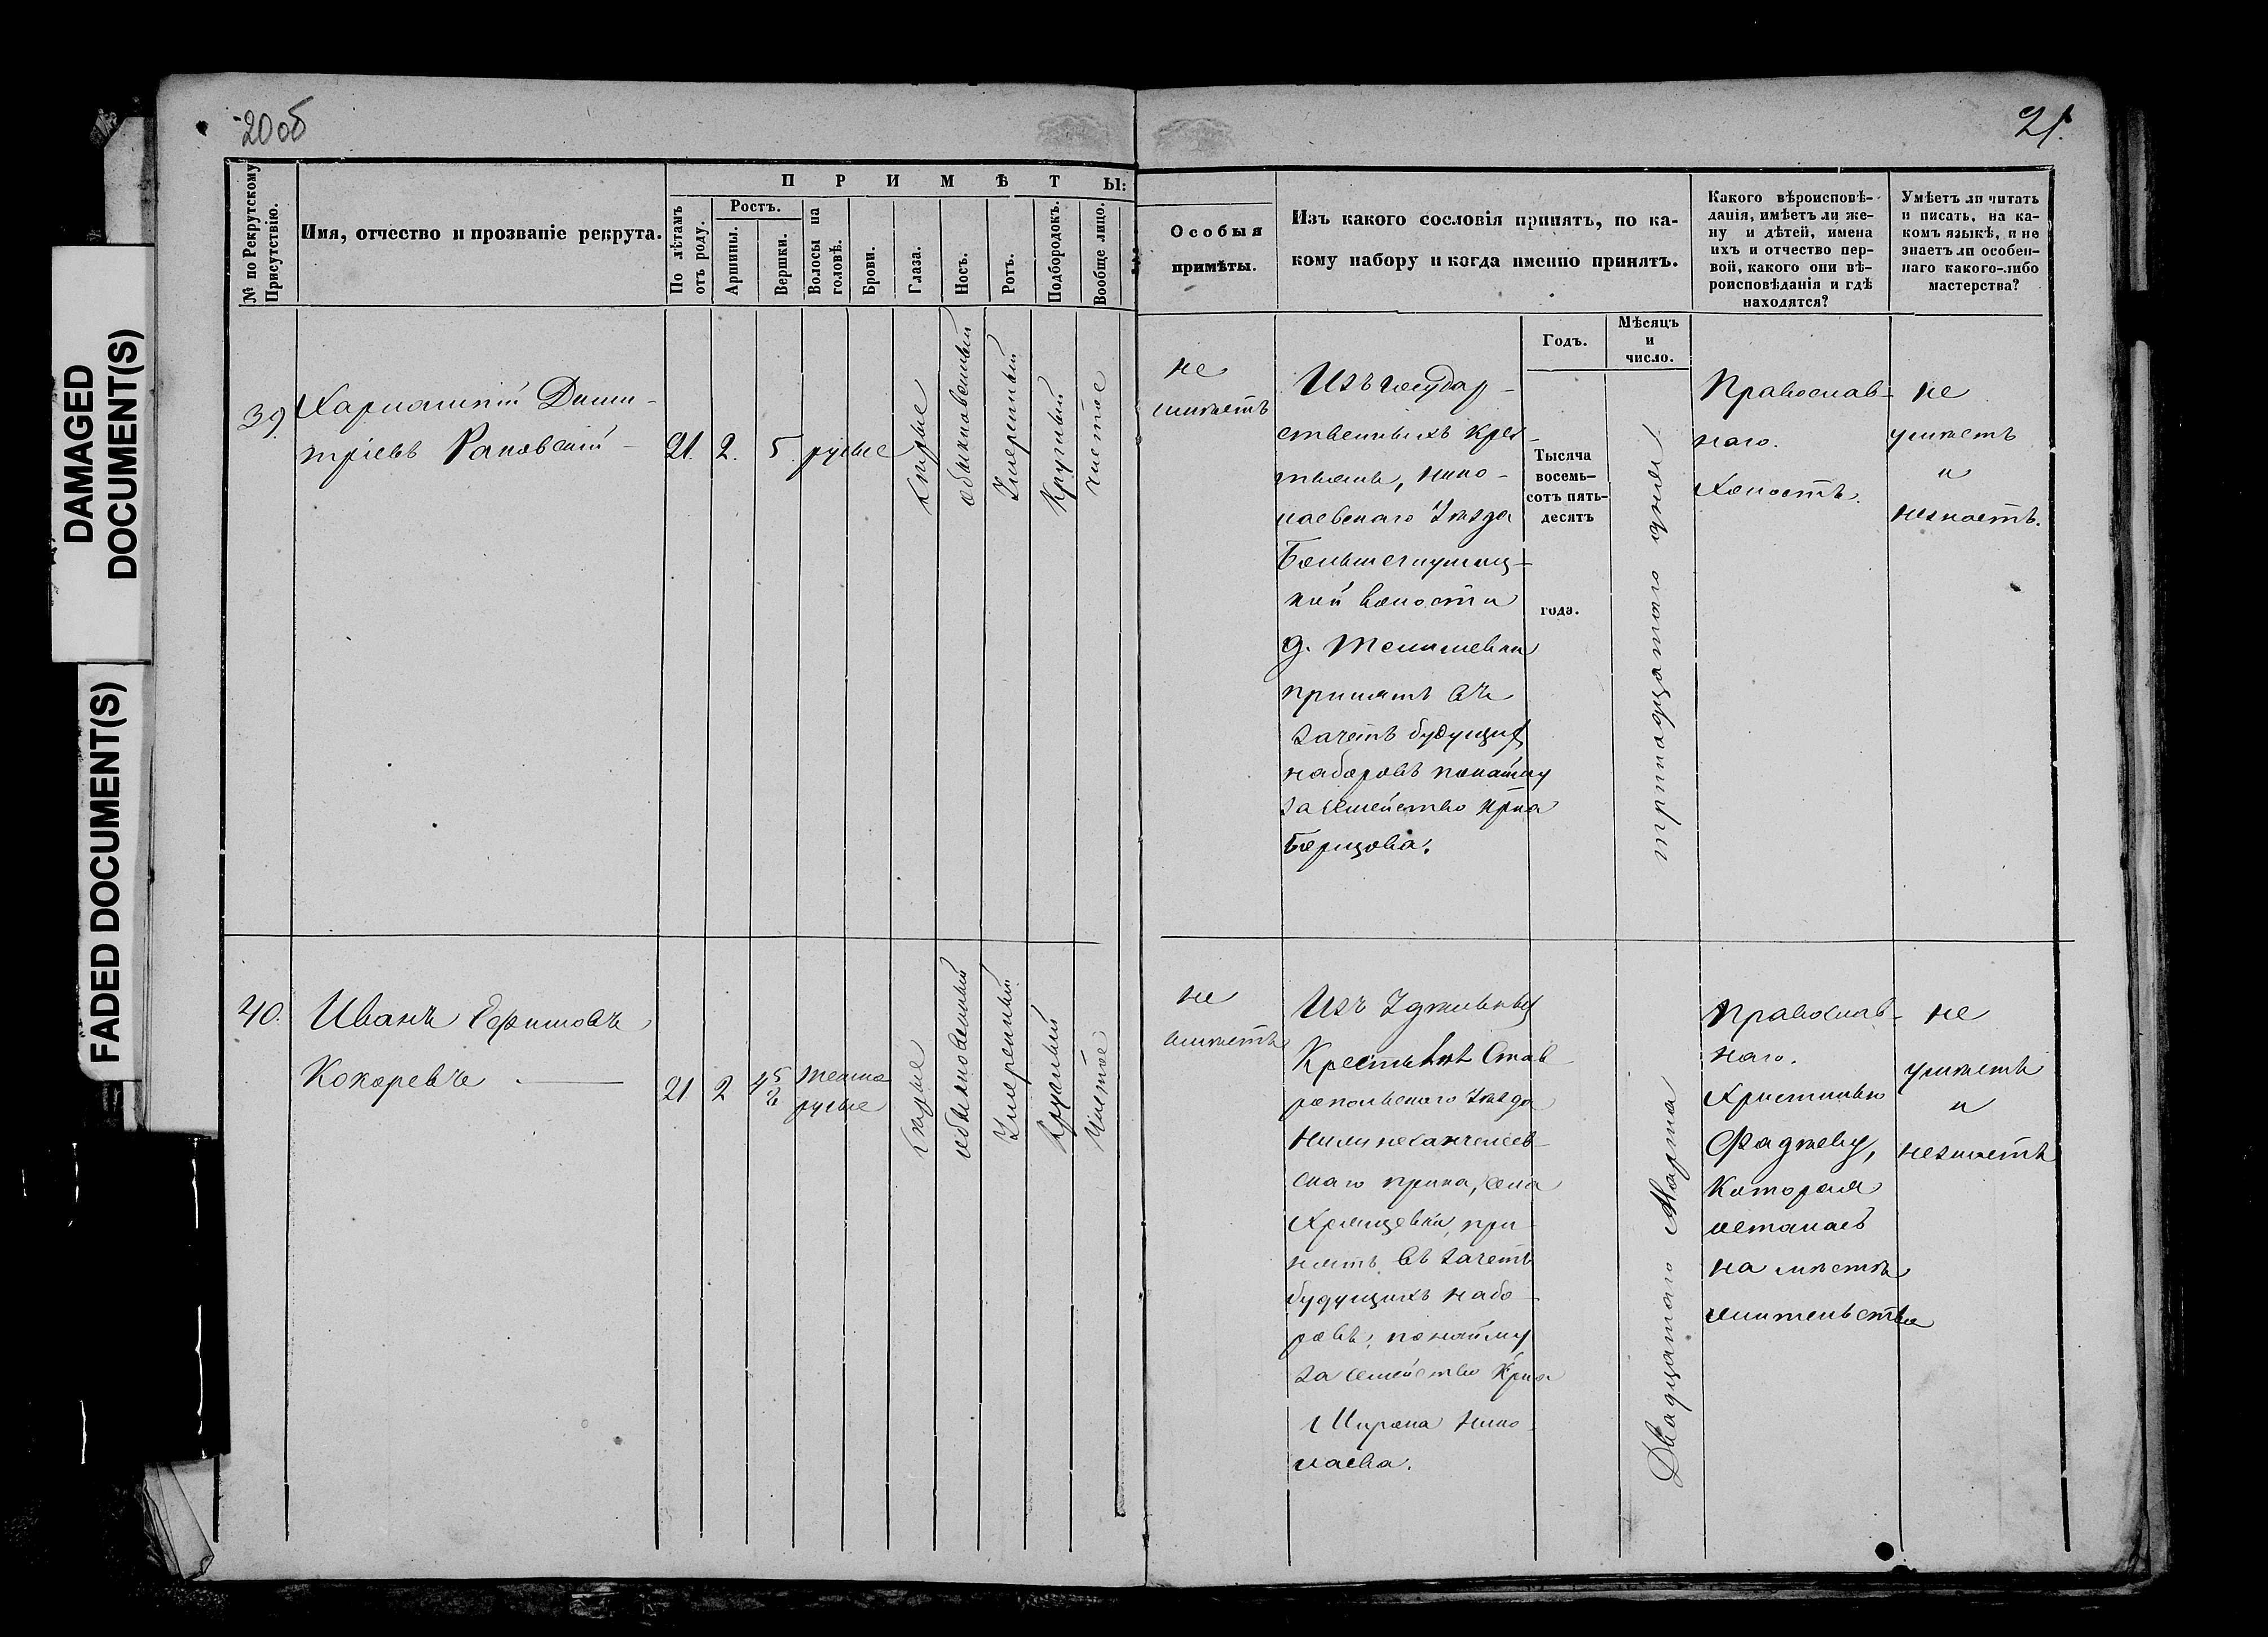 20 об
21.
DAMAGED
DOCUMENT(S)
FADED DOCUMENT(S)
№ по Рекрутскому
Присутствію.
Имя, отчество и прозваніе рекрута.
ПРИМѢТЫ:
По лѣтамъ
отъ роду.
Ростъ.
Аршины.
Вершки.
Волосы на
головѣ.
Брови.
Глаза.
Носъ.
Ротъ.
Подбородокъ.
Вообще лицо.
Особыя
примѣты.
Изъ какого сословія принятъ, по ка-
кому набору и когда именно принятъ.
Годъ.
Мѣсяцъ
и
число.
Какого вѣроисповѣ-
данія, имѣетъ ли же-
ну и дѣтей, имена
ихъ и отчество пер-
вой, какого они вѣ-
роисповѣданія и гдѣ
находятся?
Умѣетъ ли читать
и писать, на ка-
комъ языкѣ, и не
знаетъ ли особен-
наго какого-либо
мастерства?
39.
Харлампій Дми-
тріевъ
21.
2.
5.
русые
сѣрые
обыкновенный
умеренный
круглый
чистое
не
имѣетъ
Изъ государ-
ственныхъ крес-
тьянъ, Нико-
лаевскаго уѣзда
кой волости
д.
принятъ въ
зачетъ будущих
наборовъ по найму
за семейство крна
Борцова.
Тысяча
восемь-
сотъ пять-
десятъ
года.
тринадцатаго дня
Православ-
наго.
Холостъ.
не
умѣетъ
и
незнаетъ.
40.
Иванъ Ефимовъ
Кокаревъ
21
2
темно
русые
сѣрые
обыкновенный
умеренный
круглый
чистое
не
имѣетъ
Изъ Удѣльных
Крестьянъ Став
ропольскаго уѣзда
скаго прика, села
Хрящевки, при
нятъ въ зачетъ
будущихъ набо-
ровъ, по найму
за семейство крна
Мирона Нико
лаева.
Двадцатаго Марта
Православ-
наго.
Христинью
Фадѣеву,
которая
осталась
на мѣстѣ
жительства
не
умѣетъ
и
незнаетъ